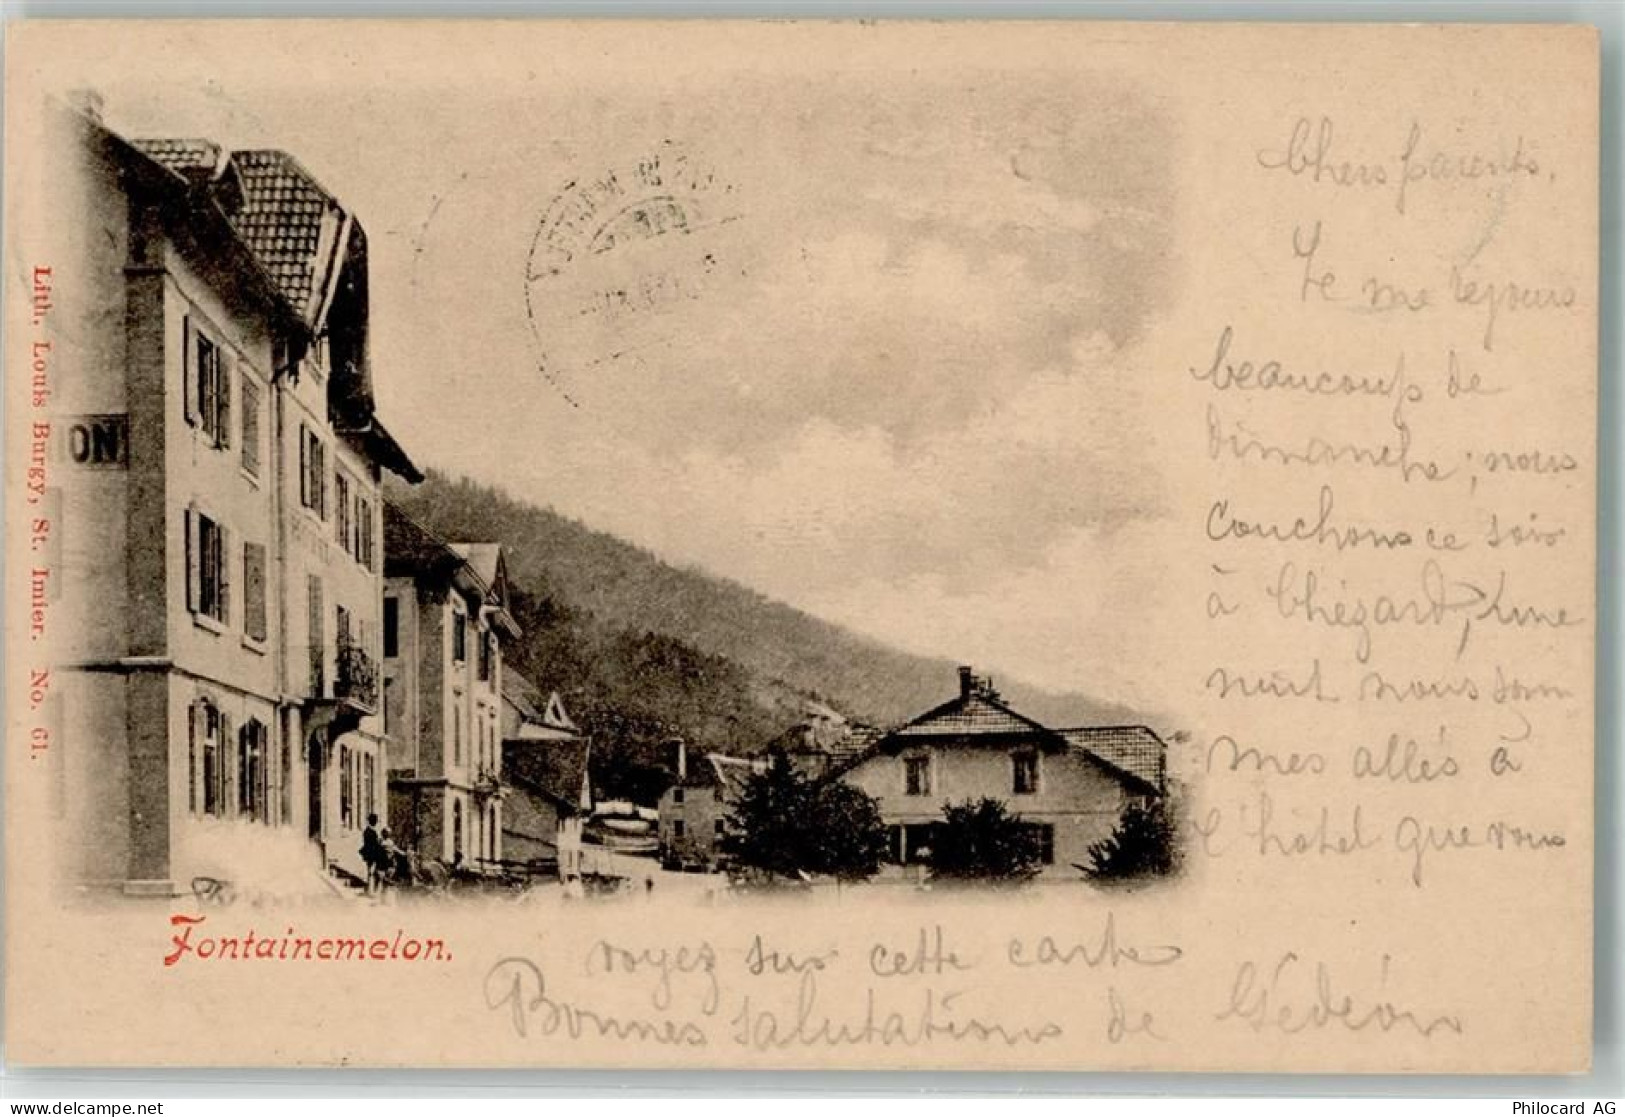 Chers parents,
Je me réjouis
beaucoup de
dimanche ; nous
couchons ce soir
à Chézard, une
nuit nous som
mes allés à
l'hôtel que vous
voyez sur cette carte
Bonnes salutations de Gédéon
Fontainemelon.
Lith. Louis Burgy, St. Imier. No. 61.
ON
Philocard AG